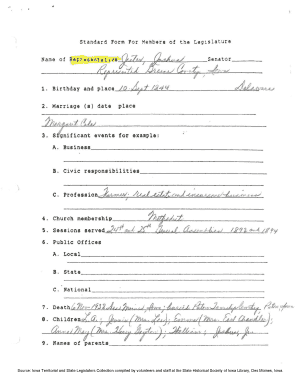 Standard Form For Members of the Legislature
Name of Representative Joshua Senator
Represented Greene County, Iowa
1. Birthday and place 10 Sept 1844 Delaware
2. Marriage (s) date place
Margaret
3. Significant events for example:
A. Business
B. Civic responsibilities
C. Profession Farmer; real estate and insurance business
4. Church membership Methodist
5. Sessions served 24th and 25th General Assemblies 1892 and 1894
6. Public Offices
A. Local
B. State
C. National
7. Death 6 Nov 1928 Iowa; buried
8. Children L.A.; Jennie (Mrs. ); Emma (Mrs. Earl Chandler);
Anna May (Mrs. Harry ); ; Joshua, Jr.
9. Names of parents
Source: Iowa Territorial and State Legislators Collection compiled by volunteers and staff at the State Historical Society of Iowa Library, Des Moines, Iowa.